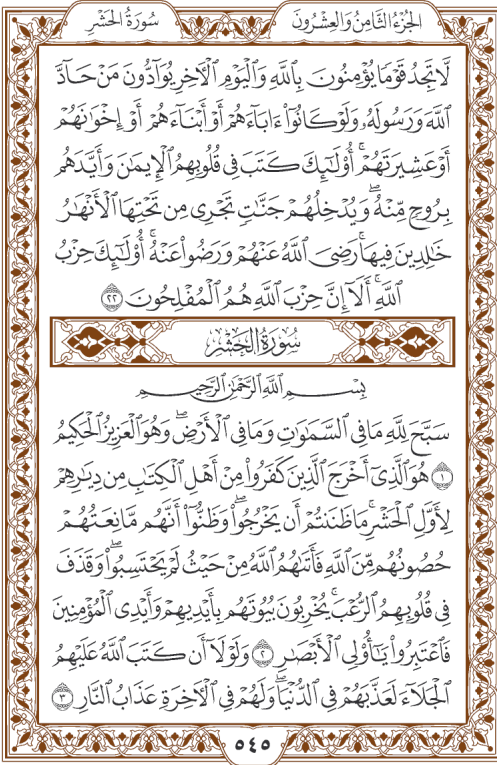 الجُزْءُ الثَّامِنُ وَالعِشْرُونَ سُورَةُ الحَشْرِ
لَّا تَجِدُ قَوْمًا يُؤْمِنُونَ بِٱللَّهِ وَٱلْيَوْمِ ٱلْأٓخِرِ يُوَآدُّونَ مَنْ حَآدَّ
ٱللَّهَ وَرَسُولَهُۥ وَلَوْ كَانُوٓا۟ ءَابَآءَهُمْ أَوْ أَبْنَآءَهُمْ أَوْ إِخْوَٰنَهُمْ
أَوْ عَشِيرَتَهُمْ ۚ أُو۟لَٰٓئِكَ كَتَبَ فِى قُلُوبِهِمُ ٱلْإِيمَٰنَ وَأَيَّدَهُم
بِرُوحٍ مِّنْهُ ۖ وَيُدْخِلُهُمْ جَنَّٰتٍ تَجْرِى مِن تَحْتِهَا ٱلْأَنْهَٰرُ
خَٰلِدِينَ فِيهَا ۚ رَضِىَ ٱللَّهُ عَنْهُمْ وَرَضُوا۟ عَنْهُ ۚ أُو۟لَٰٓئِكَ حِزْبُ
ٱللَّهِ ۚ أَلَآ إِنَّ حِزْبَ ٱللَّهِ هُمُ ٱلْمُفْلِحُونَ ٢٢
سُورَةُ الحَشْرِ
بِسْمِ ٱللَّهِ ٱلرَّحْمَٰنِ ٱلرَّحِيمِ
سَبَّحَ لِلَّهِ مَا فِى ٱلسَّمَٰوَٰتِ وَمَا فِى ٱلْأَرْضِ ۖ وَهُوَ ٱلْعَزِيزُ ٱلْحَكِيمُ
١ هُوَ ٱلَّذِىٓ أَخْرَجَ ٱلَّذِينَ كَفَرُوا۟ مِنْ أَهْلِ ٱلْكِتَٰبِ مِن دِيَٰرِهِمْ
لِأَوَّلِ ٱلْحَشْرِ ۚ مَا ظَنَنتُمْ أَن يَخْرُجُوا۟ ۖ وَظَنُّوٓا۟ أَنَّهُم مَّانِعَتُهُمْ
حُصُونُهُم مِّنَ ٱللَّهِ فَأَتَىٰهُمُ ٱللَّهُ مِنْ حَيْثُ لَمْ يَحْتَسِبُوا۟ ۖ وَقَذَفَ
فِى قُلُوبِهِمُ ٱلرُّعْبَ ۚ يُخْرِبُونَ بُيُوتَهُم بِأَيْدِيهِمْ وَأَيْدِى ٱلْمُؤْمِنِينَ
فَٱعْتَبِرُوا۟ يَٰٓأُو۟لِى ٱلْأَبْصَٰرِ ٢ وَلَوْلَآ أَن كَتَبَ ٱللَّهُ عَلَيْهِمُ
ٱلْجَلَآءَ لَعَذَّبَهُمْ فِى ٱلدُّنْيَا ۖ وَلَهُمْ فِى ٱلْأٓخِرَةِ عَذَابُ ٱلنَّارِ ٣
٥٤٥